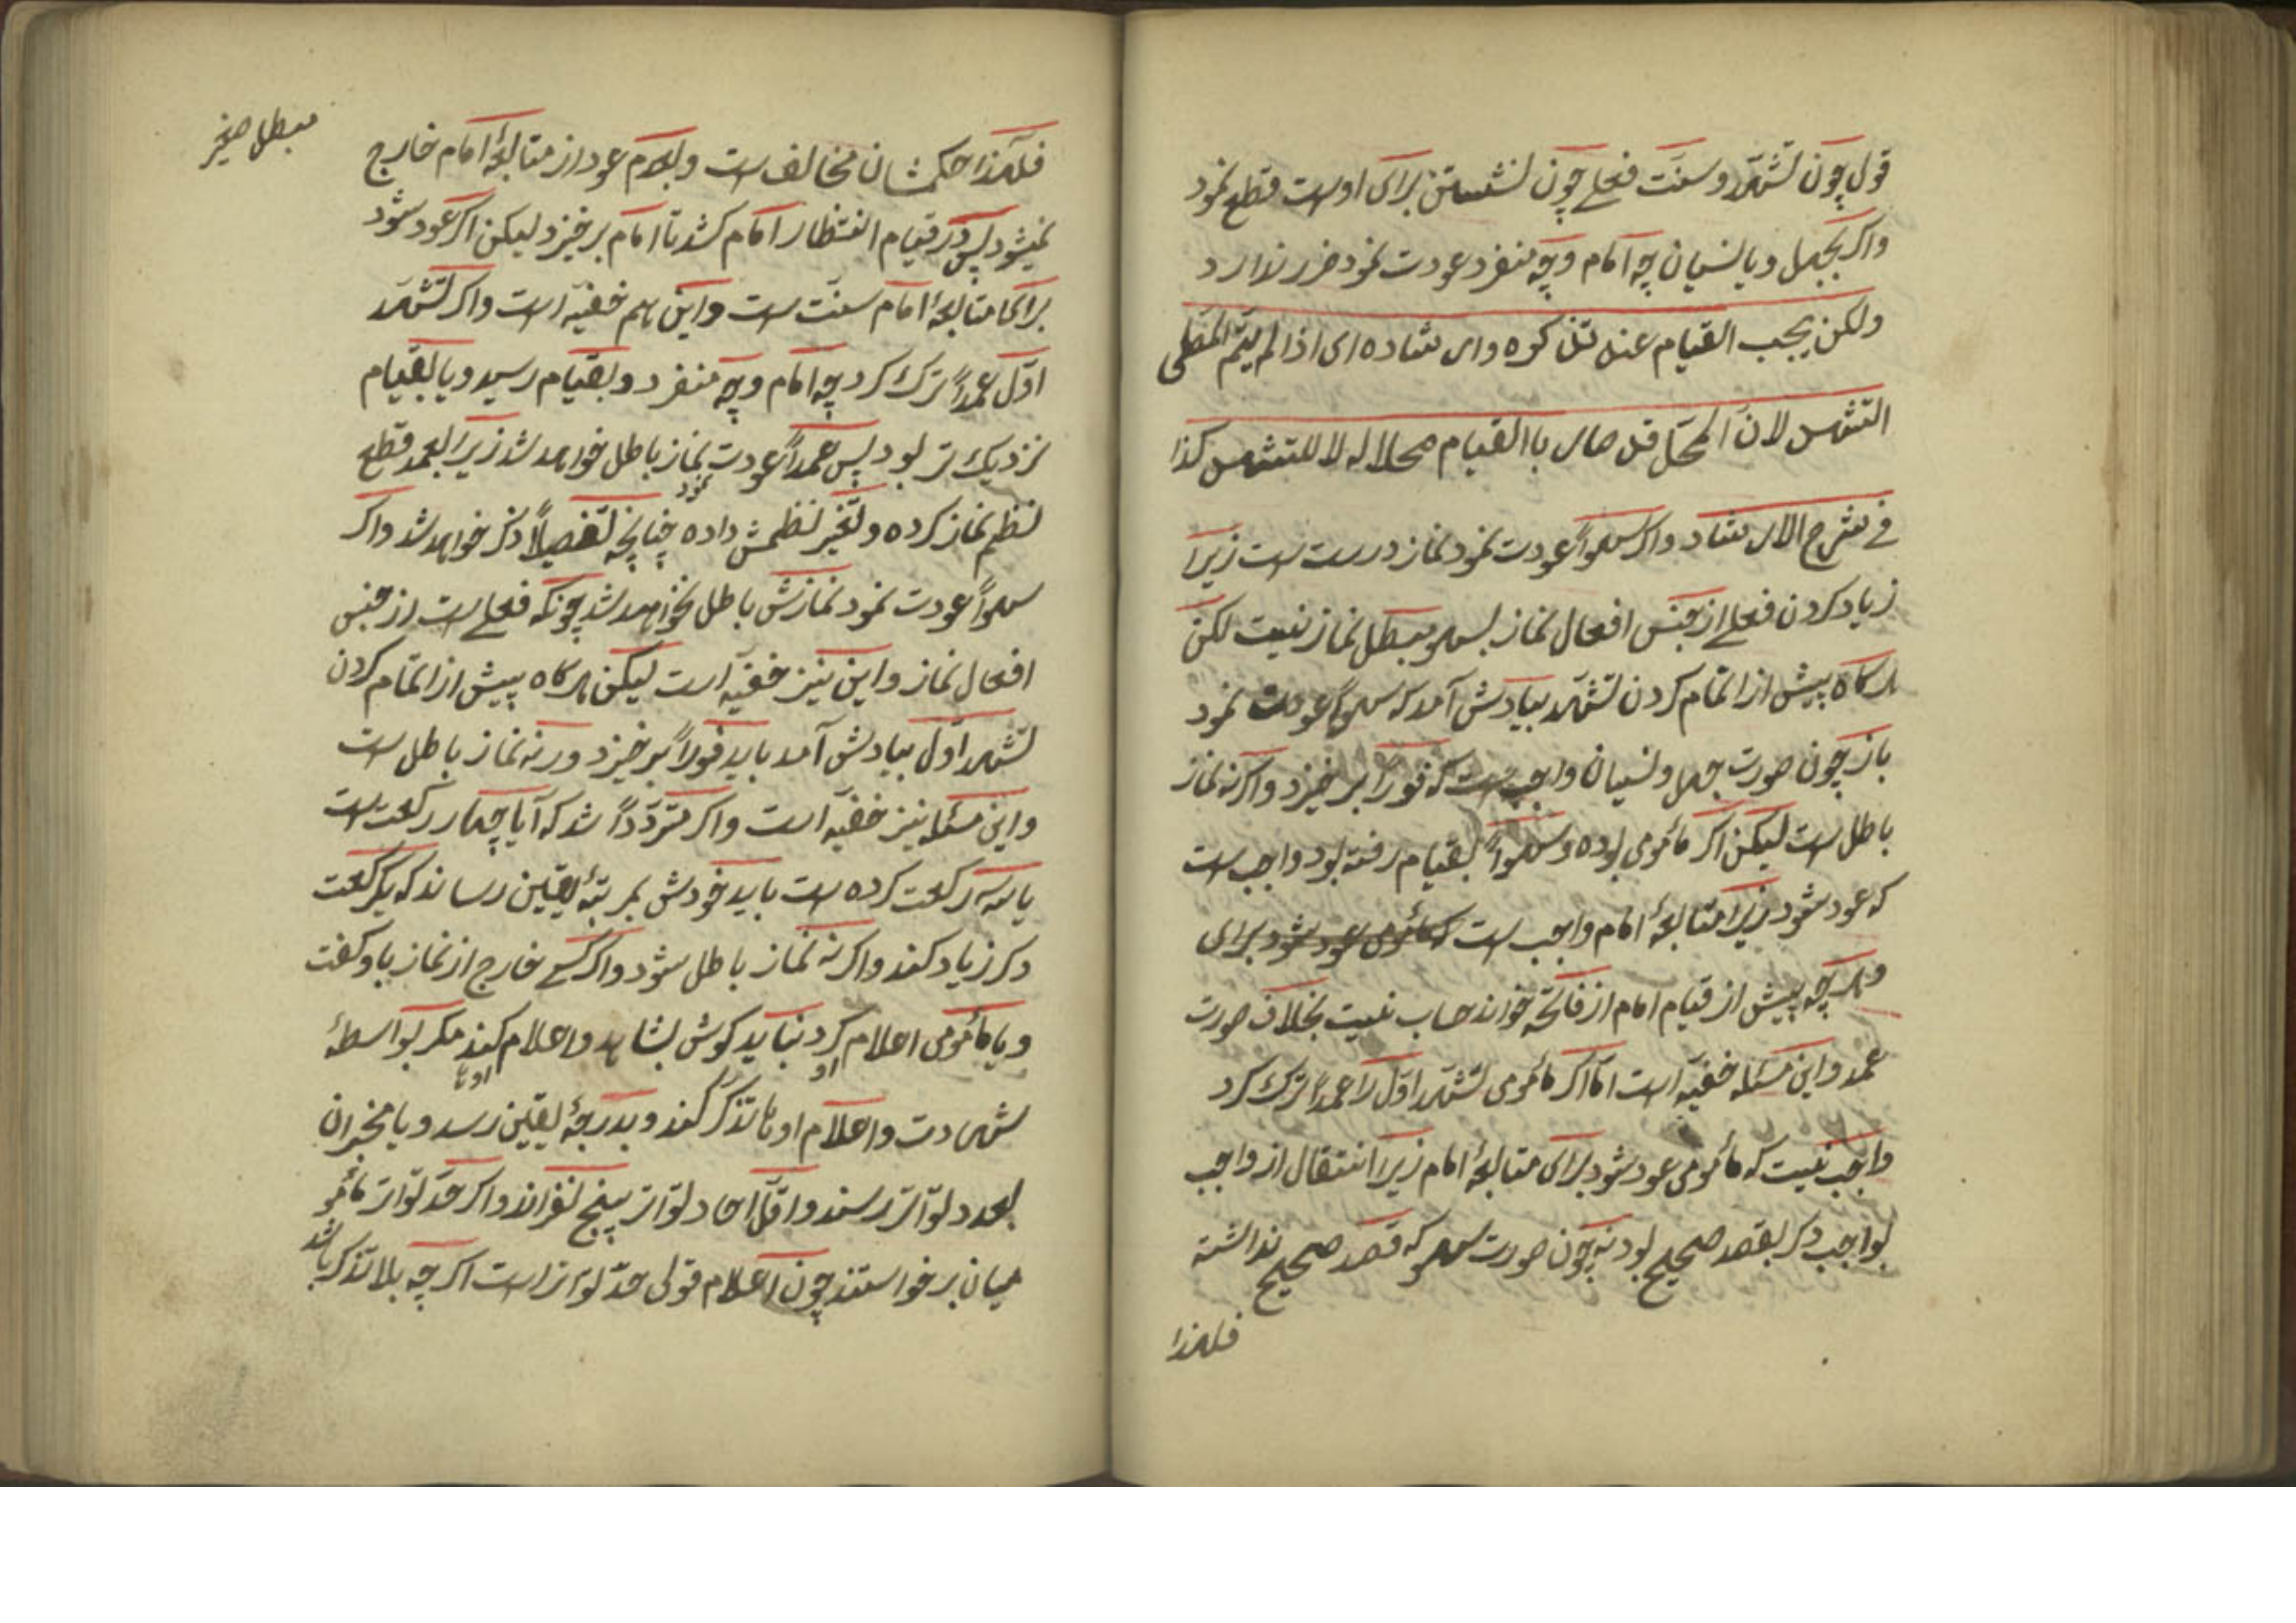 قول چون تشهد و سنت فعلی چون نشستن برای اوست قطع نمود
واکر بجهل ویا نسیان چه امام وچه منفرد عودت نمود ضرر ندارد
ولکن یجب القیام عند تذکره وارشاده ای اذا لم یتم المصلی
التشهد لان المحل قد صار باالقیام محلا له لا للتشهد کذا
فی شرح الارشاد واکر سهواً عودت نمود نماز درست است زیرا
زیاد کردن فعلی از جنس افعال نماز بسهو مبطل نماز نیست لکن
هرکاه پیش از اتمام کردن تشهد بیادش آمد که سهواً عودت نمود
باز چون صورت جهل ونسیان واجبست که فوراً برخیزد واکرنه نماز
باطل است لیکن اکر مأمومی بوده وسهواً بقیام رفته بود واجب است
که عود شود زیرا متابعهٔ امام واجب است که مأمومی عود شود برای
وهرچه پیش از قیام امام از فاتحه خواند حساب نیست بخلاف صورت
عمد واین مسئله خفیّه است امّا اکر مأمومی تشهد اوّل را عمداً ترک کرد
واجب نیست که مأمومی عود شود برای متابعهٔ امام زیرا انتقال از واجب
بواجب دکر بقصد صحیح بود نه چون صورت سهو که قصد صحیح نداشته
فلهذا
مبطل صغیر
فلهذا حکمشان مخالف است وبعدم عود از متابعهٔ امام خارج
نمیشود پس در قیام انتظار امام کشد تا امام برخیزد لیکن اکر عود شود
برای متابعهٔ امام سنّت است واین هم خفیّه است واکر تشهد
اوّل عمداً ترک کرد چه امام وچه منفرد وبقیام رسید ویا بقیام
نزدیک تر بود پس عمداً عودت نمود نماز باطل خواهد شد زیرا بعمد قطع
نظم نماز کرده وتغیر نظمش داده چنانچه تفصیلاً ذکر خواهد شد واکر
سهواً عودت نمود نمازش باطل نخواهد شد چونکه فعلی است از جنس
افعال نماز واین نیز خفیّه است لیکن هرکاه پیش از اتمام کردن
تشهد اوّل بیادش آمد باید فوراً برخیزد ورنه نماز باطل است
واین مسئله نیز خفیّه است واکر متردّداً شد که آیا چهار رکعت است
یا سه رکعت کرده است باید خودش بمرتبهٔ یقین رساند که یکرکعت
دکر زیاد کند واکرنه نماز باطل شود واکر کسی خارج از نماز باو کفت
ویا مأمومی اعلام او کرد نباید کوش بشاهد واعلام اوها کند مکر بواسطهٔ
شهادت واعلام اوها تذکر کند وبدرجهٔ یقین رسد ویا مخبران
بعدد تواتر رسند واقل احاد تواتر پنج نفراند واکر حدّ تواتر مأمو
میان برخواستند چون اعلام قولی حدّ تواتر است اکرچه بلا تذکر باشد